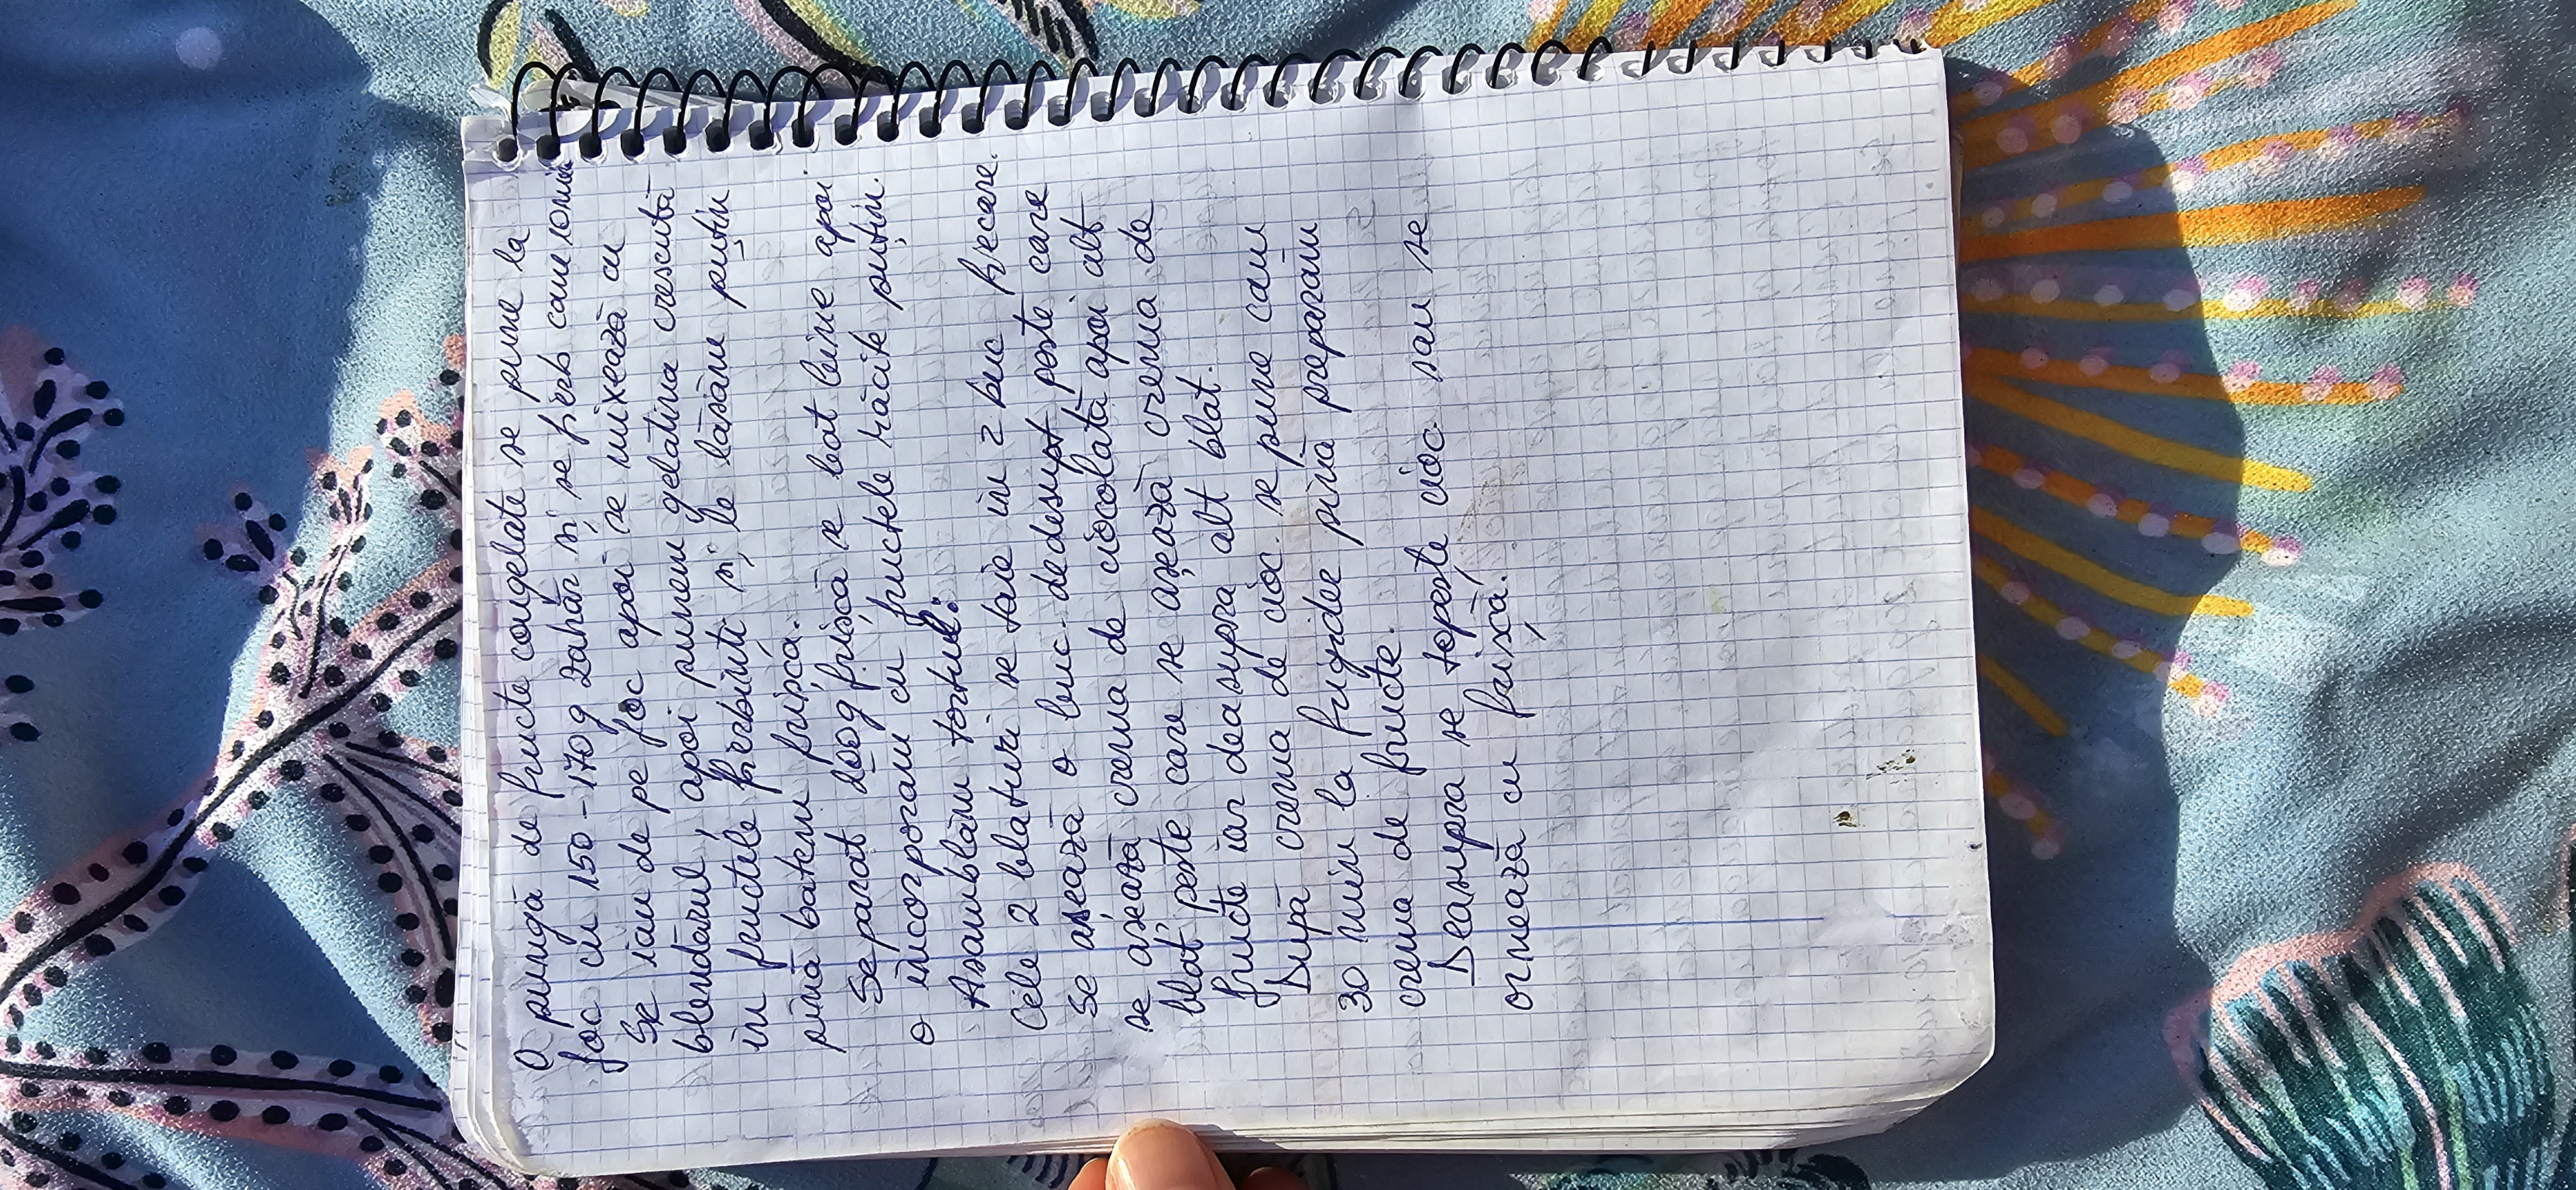 O pungă de fructe congelate se pune la
foc cu 150-170g zahăr și se fierb cam 10 min
Se iau de pe foc apoi se mixează cu
blendărul, apoi punem gelatina crescută
în fructele fierbinti și le lăsăm puțin
pînă batem frișcă.
Separat 200g frișcă se bat bine apoi
o încorporăm cu fructele răcite puțin.
Asamblăm tortul:
Cele 2 blaturi se taie în 2 buc fiecare.
Se așează o buc. dedesupt peste care
se așează crema de ciocolată apoi alt
blat peste care se așează crema de
fructe iar deasupra alt blat.
După crema de cioc. se pune cam
30 min la frigider pînă preparăm
crema de fructe.
Deasupra se topește cioc. sau se
ornează cu frișcă!